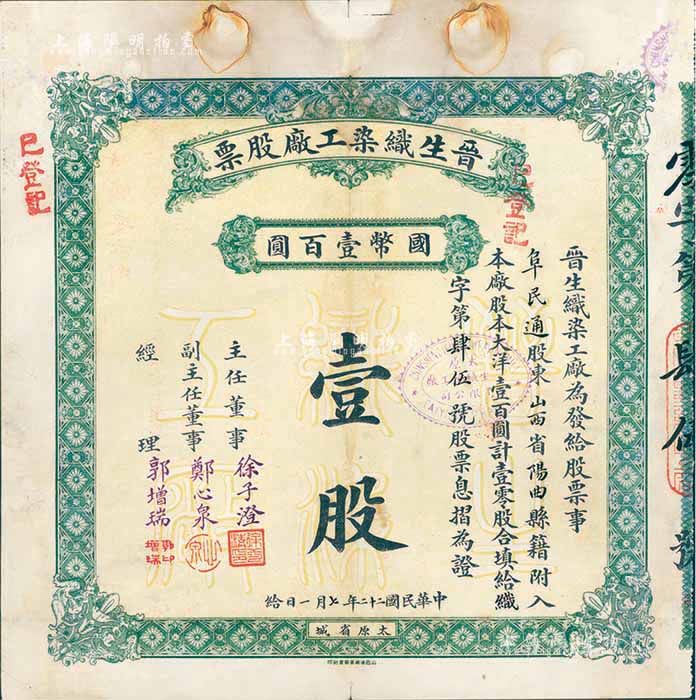 晉生織染工廠股票
國幣壹百圓
晉生織染工廠為發給股票事
阜民通股東山西省陽曲縣籍附入
本廠股本大洋壹百圓計壹零股合填給織
字第肆伍號股票息摺為證
壹股
主任董事 徐子澄
副主任董事 鄭心泉
經理 郭增瑞
中華民國二十二年七月一日給
太原省城
已登記
已登記
上海陽明拍賣